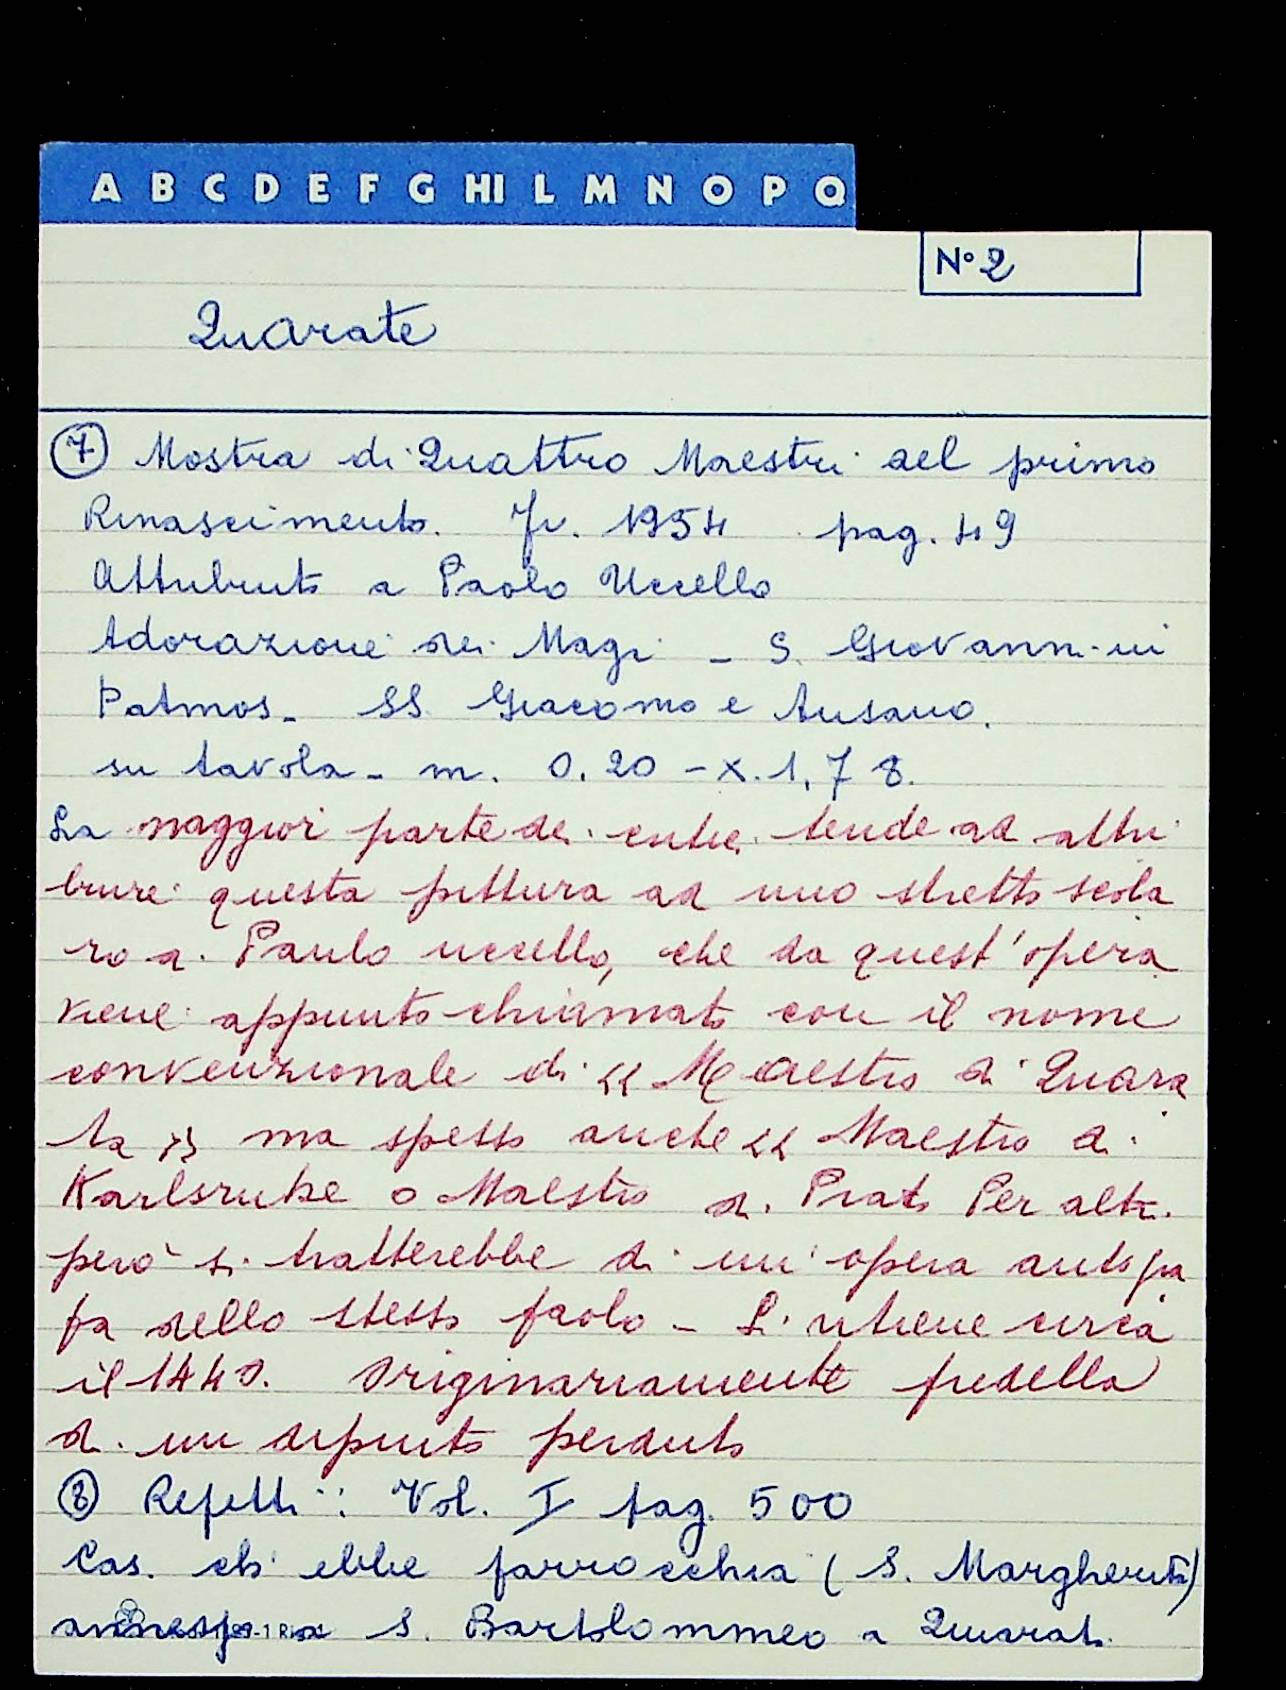 A B C D E F G HI L M N O P Q
N° 2
Quarate
7 Mostra di Quattro Maestri del primo
Rinascimento. Fi. 1954 pag. 49
Attribuito a Paolo Uccello
Adorazione dei Magi - S. Giovanni in
Patmos - SS. Giacomo e Ansano.
su tavola - m. 0,20 - x. 1,78.
La maggior parte dei critici tende ad attri
buire questa pittura ad uno stretto scola
ro di Paolo Uccello, che da quest'opera
viene appunto chiamato con il nome
convenzionale di « Maestro di Quara
ta » ma spesso anche « Maestro di
Karlsruhe o Maestro di Prato Per altri
però si tratterebbe di un'opera autogra
fa dello stesso Paolo - Si ritiene circa
il 1440. Originariamente predella
di un dipinto perduto
8 Repetti: Vol. I pag. 500
Cas. ch'ebbe parrocchia (S. Margherita)
annessa a S. Bartolommeo a Quarate